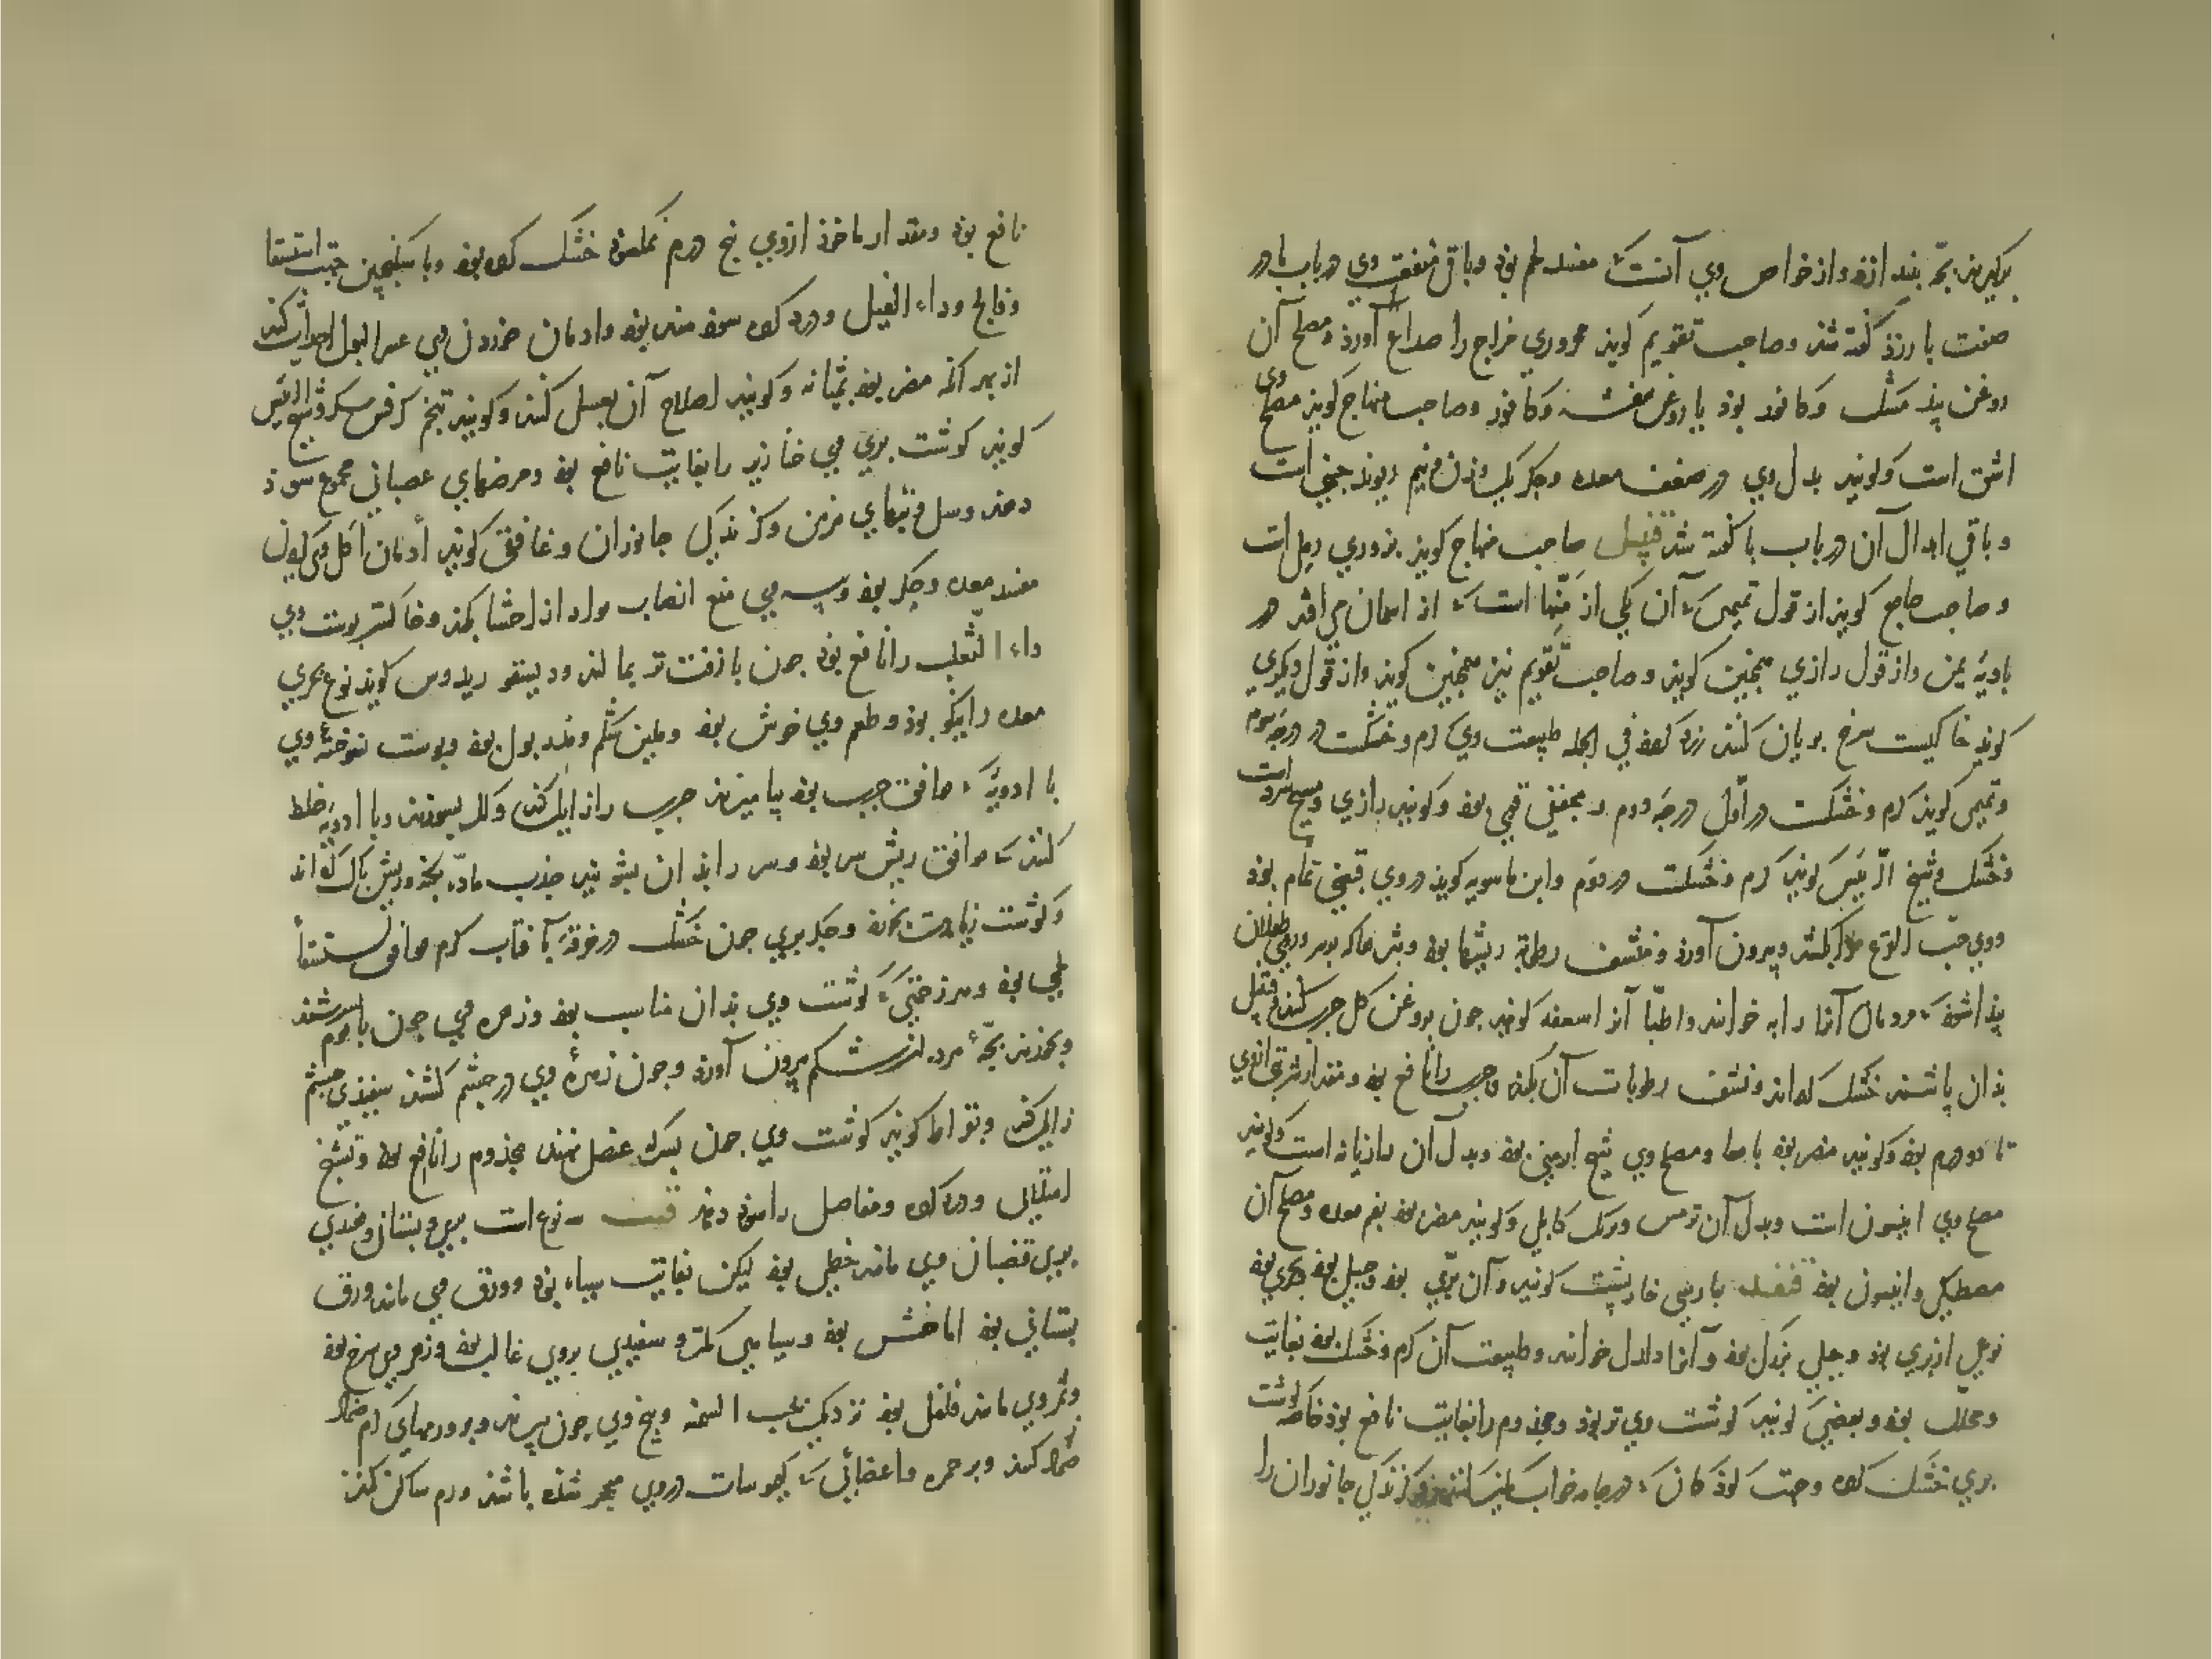 برگیرند بچّه بیندازد و از خواص وی آنست که مفسد طم بود و باقی منفعت وی در باب با در
صفت بارزد گفته شد و صاحب تقویم گوید محروری مزاج را صداع آورد و مصلح آن
روغن بید مشک و کافور بود یا روغن بنفشه و کافور و صاحب منهاج گوید مصلح وی
اشق است و گویند بدل وی در ضعف معده و جگر یک وزن و نیم ریوند چینی است
و باقی ابدال آن در باب با گفته شد قنبیل صاحب منهاج گوید بزوری رملی است
و صاحب جامع گوید از قول تمیمی که آن یکی از منّها است که از اسمان می افتد در
بادیه یمن و از قول رازی همچنین گوید و صاحب تقویم نیز همچنین گوید و از قول دیگری
گوید خاکیست سرخ بریان کنند زرد شود فی الجمله طبیعت وی گرم و خشکست در درجه سوم
و تمیمی گوید گرم و خشکست در اوّل درجه دوم و مجفّفی قوی بود و گویند رازی و مسیح سردست
و خشک و شیخ الرّئیس گوید گرم و خشکست در دوّم و ابن ماسویه گوید در وی قبضی تمام بود
و وی حبّ القرع را بکشد و بیرون آورد و منشّف رطوبة ریشها بود و بثرها که بر سر و روی طفلان
پیدا شود که مردمان آنرا رایه خوانند و اطبّا آنرا سعفه گویند چون بروغن گل چرب کنند و قنبیل
بدان پاشند خشک گرداند و نشف رطوبات آن بکند و جرب را نافع بود و مقدار شربتی از وی
تا دو درم بود و گویند مضر بود بامعا و مصلح وی شیح ارمنی بود و بدل آن رازیانه است و گویند
مصلح وی انیسون است و بدل آن ترمس و برنک کابلی و گویند مضر بود بفم معده و مصلح آن
مصطکی و انیسون بود قنفد بپارسی خارپشت گویند و آن برّی بود و جبلی بود و بحری بود
نوعی از بری بود و جبلی بزرگ بود و آنرا دلدل خوانند و طبیعت آن گرم و خشک بود بغایت
و محلّل بود و بعضی گویند گوشت وی تر بود و مجذوم را بغایت نافع بود خاصه گوشت
بری خشک کرده و جهت کودکان که در جامه خواب کمیز کنند و گزندگی جانوران را
نافع بود و مقدار ماخوذ از وی پنج درم نمکسود خشک کرده بود و با سکنجبین جهت استسقا
و فالج و داء الفیل و درد گرده سودمند بود و ادمان خوردن وی عسر البول احداث کند
از بهر آنکه مضر بود بمثانه و گویند اصلاح آن بعسل کنند و گویند بتخم کرفس و سکر و شیخ الرئیس
گوید گوشت بری وی خنازیر را بغایت نافع بود و مرضهای عصبانی مجموع سود
دهد و سل و تبهای مزمن و گزندگی جانوران و غافقی گوید أدمان اکل وی کردن
مفسد معده و جگر بود و پیه وی منع انصباب مواد از احشا بکند و خاکستر پوست وی
داء الثعلب را نافع بود چون با زفت تر بمالند و دیسقوریدوس گوید نوع بحری
معده را نیکو بود و طعم وی خوش بود و ملین شکم و مدر بول بود و پوست سوخته وی
با ادویّه که موافق جرب بود بیامیزند جرب را زایل کند و اگر بسوزند و با ادویه خلط
کنند که موافق ریش سر بود و سر را بدان بشویند جذب مادّه بکند و ریش پاک گرداند
و گوشت زیادت بخورد و جگر بری چون خشک در خرقه بآفتاب گرم موافق استسقاء
لحمی بود و هر زحمتی که گوشت وی بدان مناسب بود و زهره وی چون با موم بسرشند
و بخورند بچّه مرده از شکم بیرون آورد و چون زهرهٔ وی در چشم کشند سپیدی چشم
زایل کند و بقراط گوید گوشت وی چون بسرکه عنصل نهند مجذوم را نافع بود و تشنّج
امتلایی و درد گرده و مفاصل را سود دهد قنب سه نوع است بری و بستانی و هندی
بری قضبان وی مانند خطمی بود لیکن بغایت سیاه بود و ورق وی مانند ورق
بستانی بود اما خشن بود و سیاهی کمتر و سفیدی بروی غالب بود و زهر وی سرخ بود
و ثمر وی مانند فلفل بود نزدیک بحب السمنه و بیخ وی چون بپزند و بر ورمهای گرم ضماد
ضماد کنند و بر حمره و اعضائی که کیموسات در وی متحجر شده باشد ورم ساکن کند